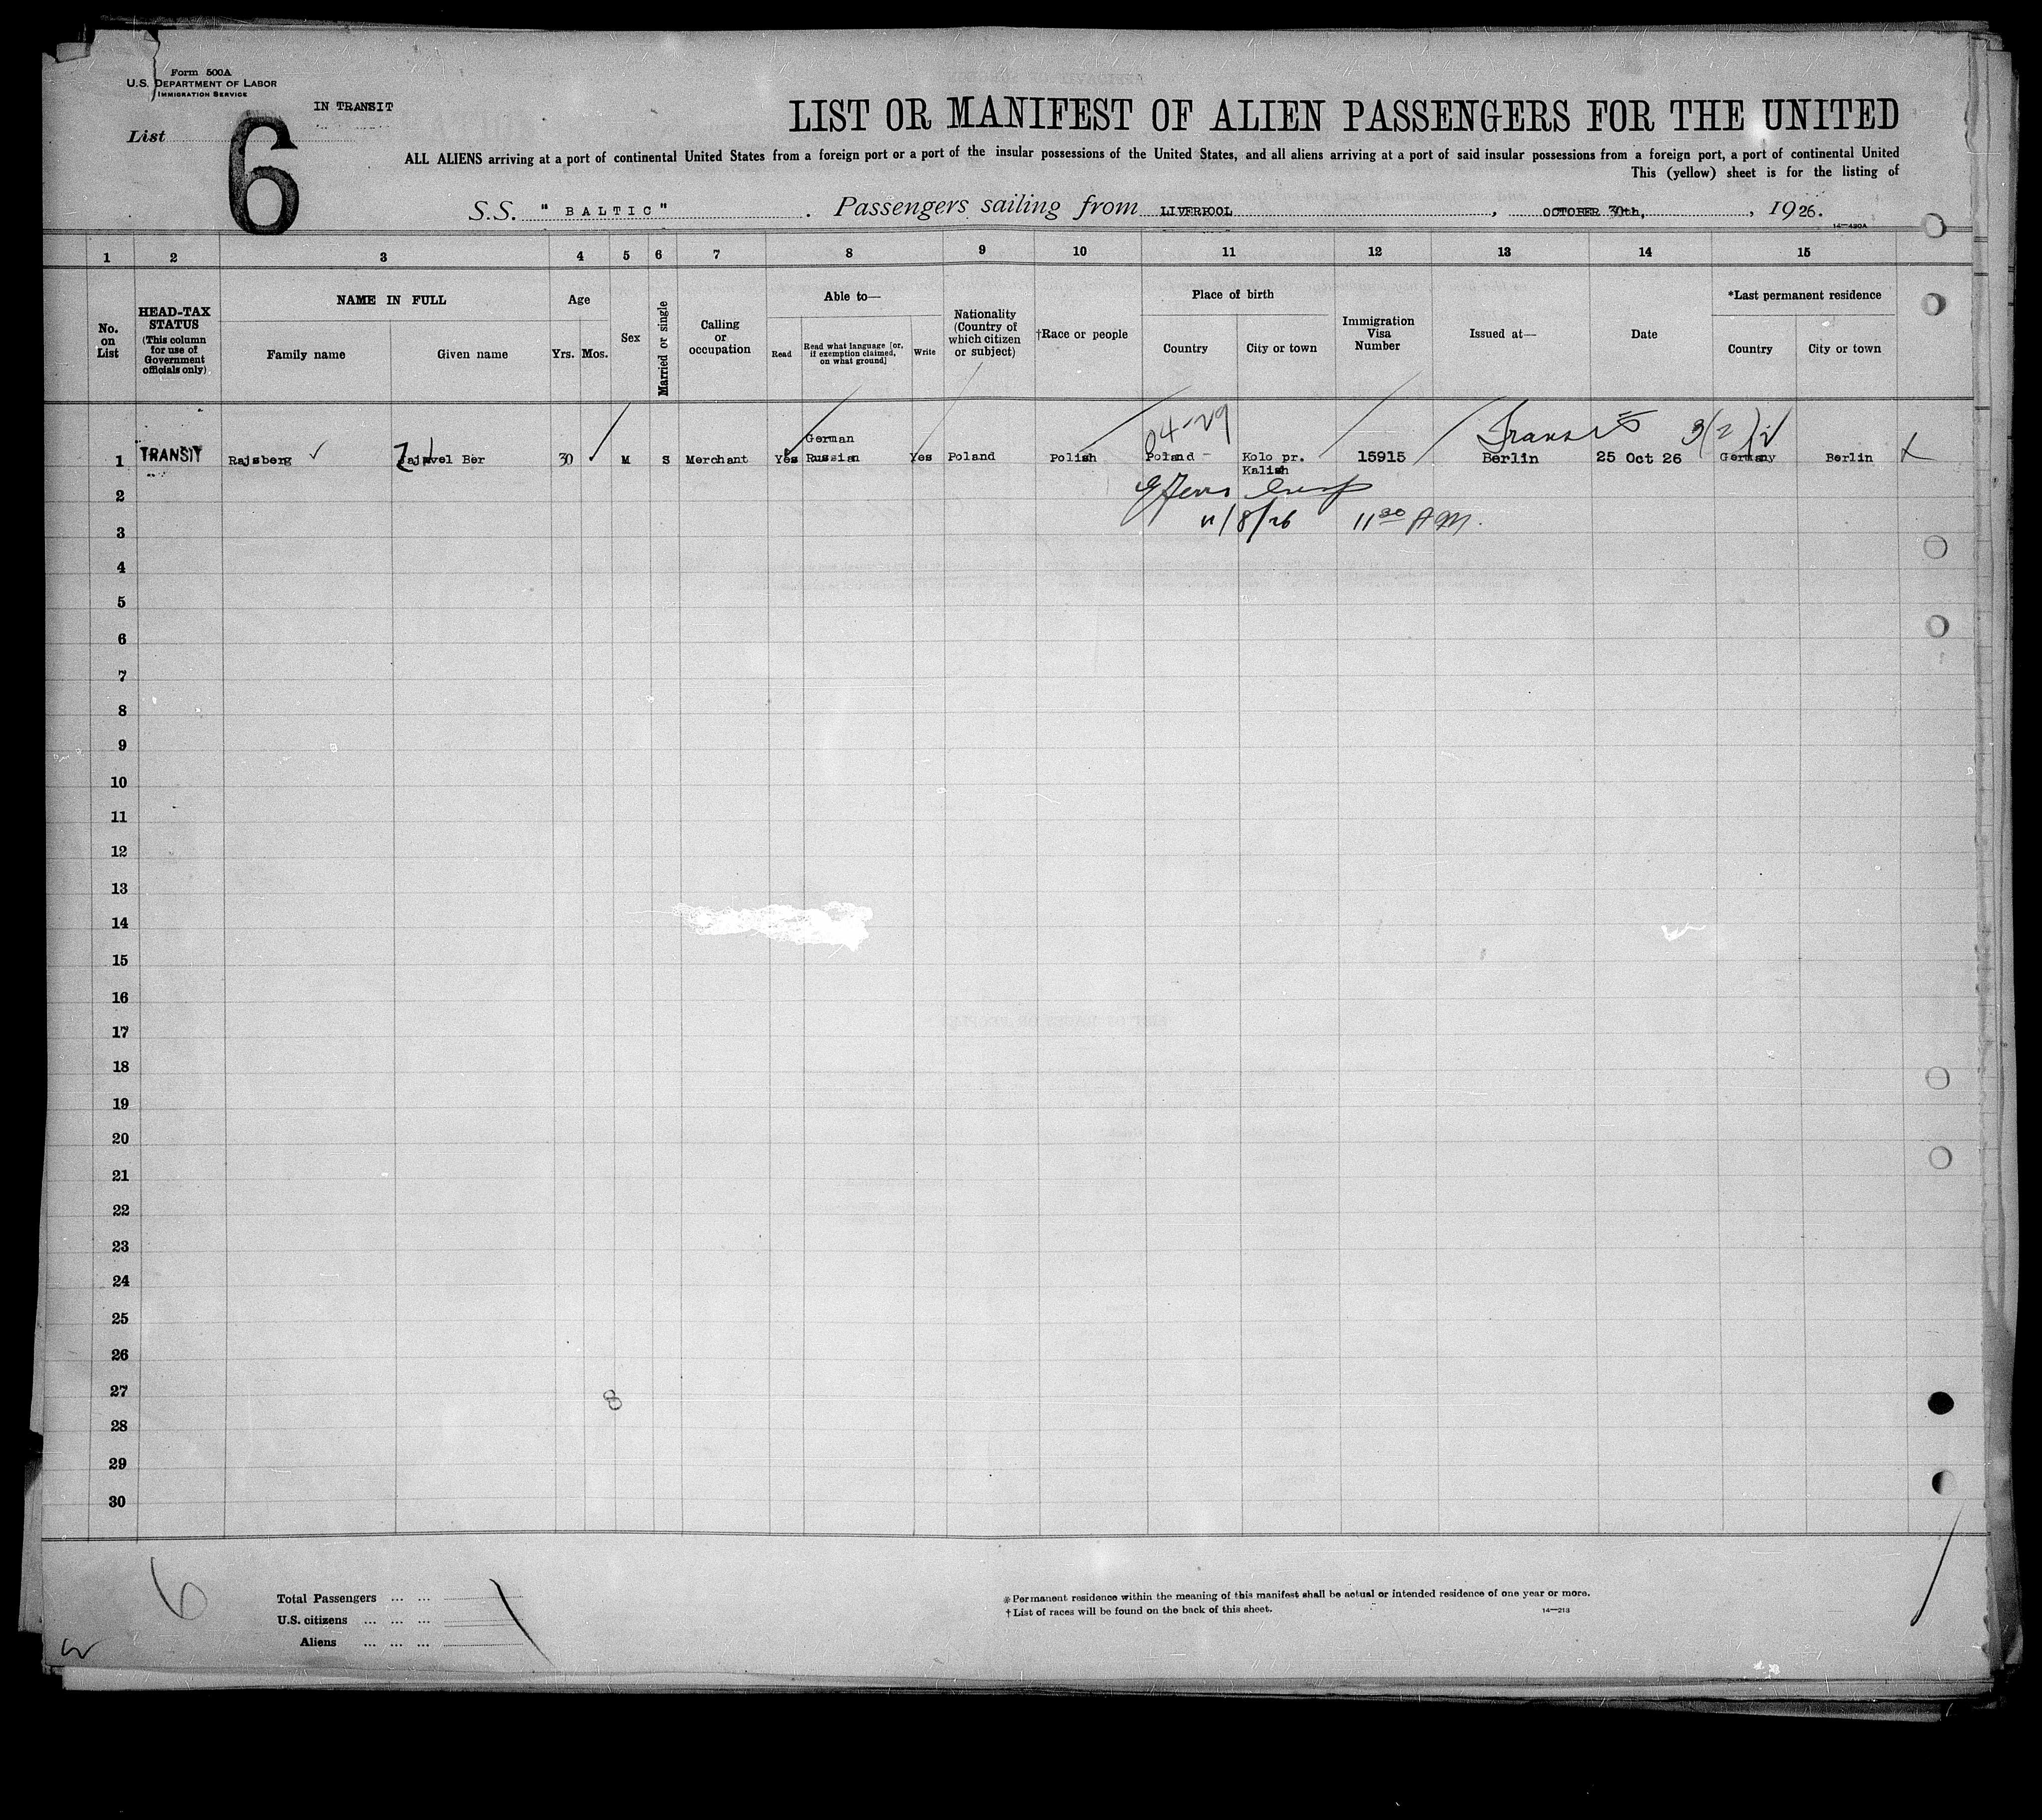 Form 500A
U.S. DEPARTMENT OF LABOR
IMMIGRATION SERVICE
IN TRANSIT
List 6
LIST OR MANIFEST OF ALIEN PASSENGERS FOR THE UNITED
ALL ALIENS arriving at a port of continental United States from a foreign port or a port of the insular possessions of the United States, and all aliens arriving at a port of said insular possessions from a foreign port, a port of continental United
This (yellow) sheet is for the listing of
S.S. "BALTIC". Passengers sailing from LIVERPOOL, OCTOBER 30th, 1926.
14—430A
1 2 3 4 5 6 7 8 9 10 11 12 13 14 15
No. on List
HEAD-TAX STATUS (This column for use of Government officials only)
NAME IN FULL
Family name Given name
Age
Yrs. Mos.
Sex
Married or single
Calling or occupation
Able to—
Read
Read what language [or, if exemption claimed, on what ground]
Write
Nationality (Country of which citizen or subject)
†Race or people
Place of birth
Country City or town
Immigration Visa Number
Issued at—
Date
*Last permanent residence
Country City or town
04-29 Transit 3(2)
German
1 TRANSIT Rajsberg Ber 30 M S Merchant Yes Russian Yes Poland Polish Poland Kolo pr. 15915 Berlin 25 Oct 26 Germany Berlin
Kalish
2
11/8/26 11 30 AM.
3
4
5
6
7
8
9
10
11
12
13
14
15
16
17
18
19
20
21
22
23
24
25
26
27
8
28
29
30
6
Total Passengers ... ...
U.S. citizens ... ... ...
Aliens ... ... ...
* Permanent residence within the meaning of this manifest shall be actual or intended residence of one year or more.
† List of races will be found on the back of this sheet.
14—213